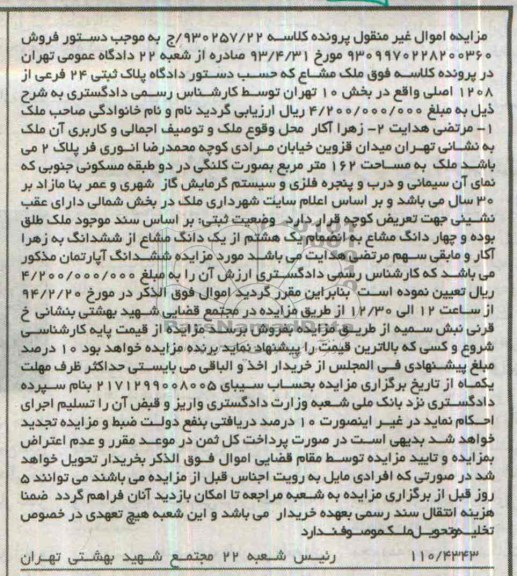 مزایده اموال غیر منقول پرونده کلاسه ۹۳۰۲۵۷/۲۲/ج به موجب دستور فروش
۹۳۰۹۹۷۰۲۲۸۲۰۰۳۶۰ مورخ ۹۳/۴/۳۱ صادره از شعبه ۲۲ دادگاه عمومی تهران
در پرونده کلاسه فوق ملک مشاع که حسب دستور دادگاه پلاک ثبتی ۲۴ فرعی از
۱۲۰۸ اصلی واقع در بخش ۱۰ تهران توسط کارشناس رسمی دادگستری به شرح
ذیل به مبلغ ۴/۲۰۰/۰۰۰/۰۰۰ ریال ارزیابی گردید نام و نام خانوادگی صاحب ملک
۱- مرتضی هدایت ۲- زهرا آکار محل وقوع ملک و توصیف اجمالی و کاربری آن ملک
به نشانی تهران میدان قزوین خیابان مرادی کوچه محمدرضا انوری فر پلاک ۲ می
باشد ملک به مساحت ۱۶۲ متر مربع بصورت کلنگی در دو طبقه مسکونی جنوبی که
نمای آن سیمانی و درب و پنجره فلزی و سیستم گرمایش گاز شهری و عمر بنا مازاد بر
۳۰ سال می باشد و بر اساس اعلام سایت شهرداری ملک در بخش شمالی دارای عقب
نشینی جهت تعریض کوچه قرار دارد وضعیت ثبتی: بر اساس سند موجود ملک طلق
بوده و چهار دانگ مشاع به انضمام یک هشتم از یک دانگ مشاع از ششدانگ به زهرا
آکار و مابقی سهم مرتضی هدایت می باشد مورد مزایده ششدانگ آپارتمان مذکور
می باشد که کارشناس رسمی دادگستری ارزش آن را به مبلغ ۴/۲۰۰/۰۰۰/۰۰۰
ریال تعیین نموده است بنابراین مقرر گردید اموال فوق الذکر در مورخ ۹۴/۲/۲۰
از ساعت ۱۲ الی ۱۲/۳۰ از طریق مزایده در مجتمع قضایی شهید بهشتی بنشانی خ
قرنی نبش سمیه از طریق مزایده بفروش برسد مزایده از قیمت پایه کارشناسی
شروع و کسی که بالاترین قیمت را پیشنهاد نماید برنده مزایده خواهد بود ۱۰ درصد
مبلغ پیشنهادی فی المجلس از خریدار اخذ و الباقی می بایستی حداکثر ظرف مهلت
یکماه از تاریخ برگزاری مزایده بحساب سیبای ۲۱۷۱۲۹۹۰۰۸۰۰۵ بنام سپرده
دادگستری نزد بانک ملی شعبه وزارت دادگستری واریز و قبض آن را تسلیم اجرای
احکام نماید در غیر اینصورت ۱۰ درصد دریافتی بنفع دولت ضبط و مزایده تجدید
خواهد شد بدیهی است در صورت پرداخت کل ثمن در موعد مقرر و عدم اعتراض
بمزایده و تایید مزایده توسط مقام قضایی اموال فوق الذکر بخریدار تحویل خواهد
شد در صورتی که افرادی مایل به رویت اجناس قبل از مزایده می باشند می توانند ۵
روز قبل از برگزاری مزایده به شعبه مراجعه تا امکان بازدید آنان فراهم گردد ضمنا
هزینه انتقال سند رسمی بعهده خریدار می باشد و این شعبه هیچ تعهدی در خصوص
تخلیه و تحویل ملک موصوف ندارد
۱۱۰/۴۳۴۳ رئیس شعبه ۲۲ مجتمع شهید بهشتی تهران